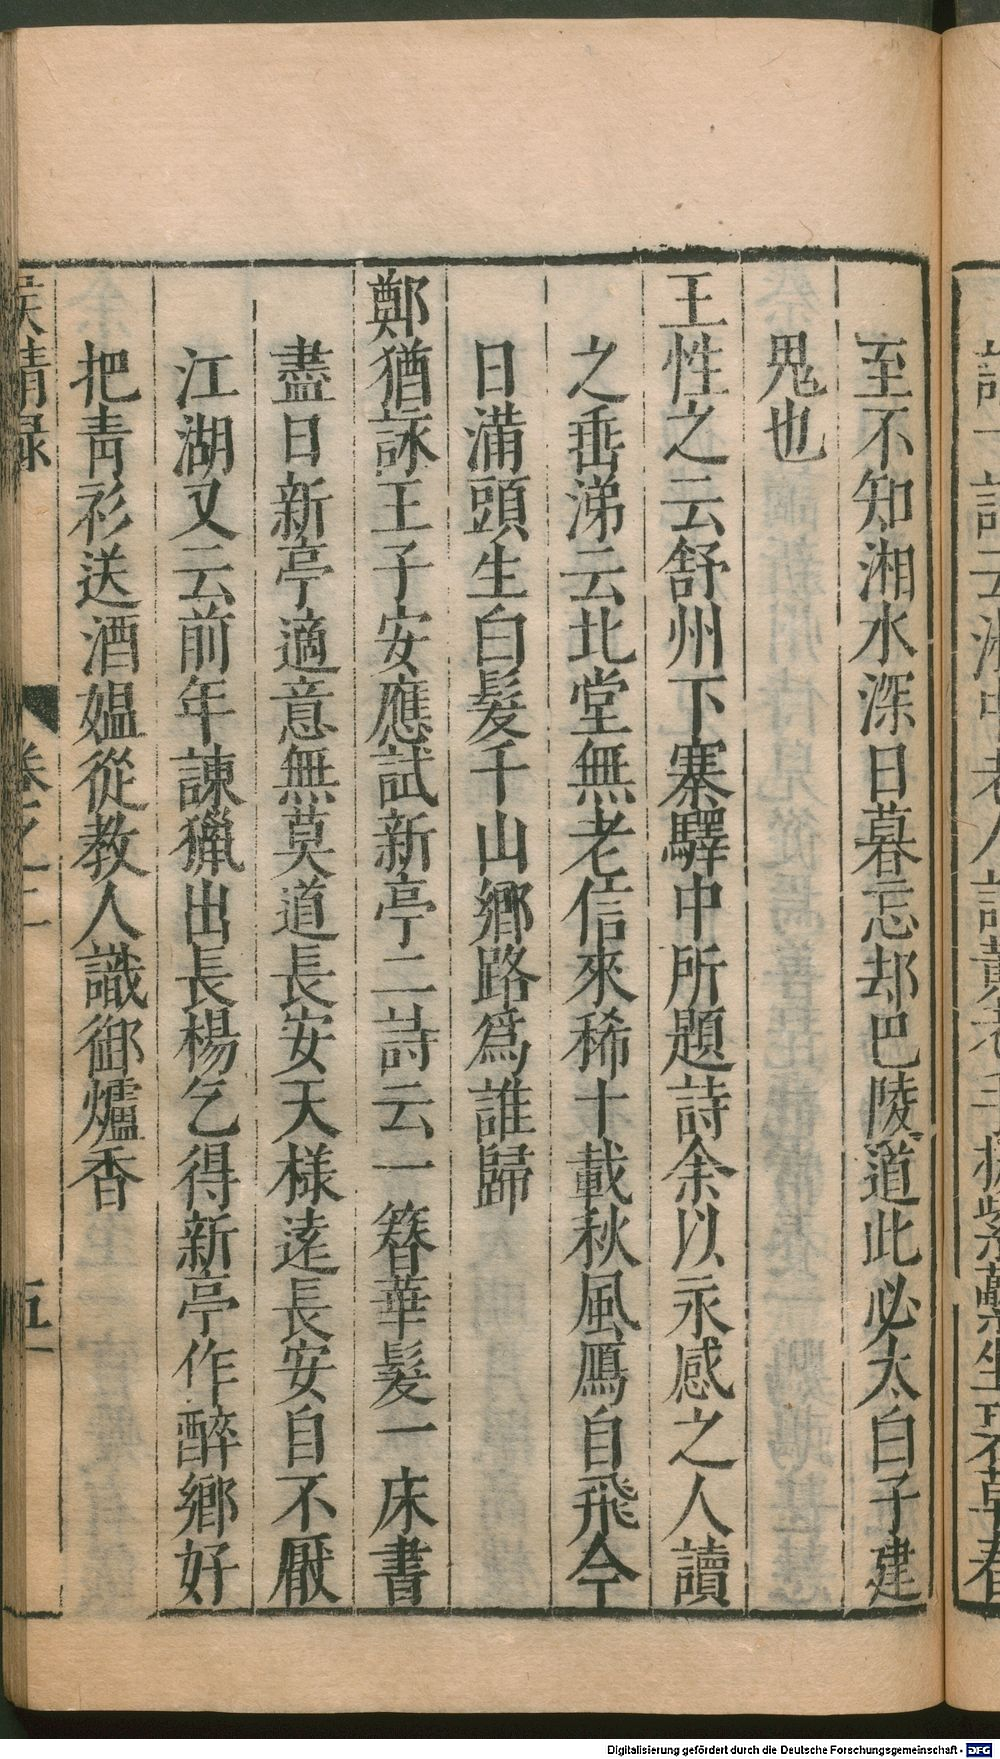 至不知湘水深日暮忘却巴陵道此必太白子建
鬼也
王性之云舒州下寨驛中所題詩余以永感之人讀
之垂涕云北堂無老信來稀十載秋風鴈自飛今
日滿頭生白髮千山鄉路爲誰歸
鄭猶詠王子安應試新亭二詩云一簪華髮一床書
盡日新亭適意無莫道長安天様遠長安自不厭
江湖又云前年諫獵出長楊乞得新亭作醉鄉好
把青衫送酒媪從教人識御爐香
侯鯖録 卷之二 五
Digitalisierung gefördert durch die Deutsche Forschungsgemeinschaft - DFG